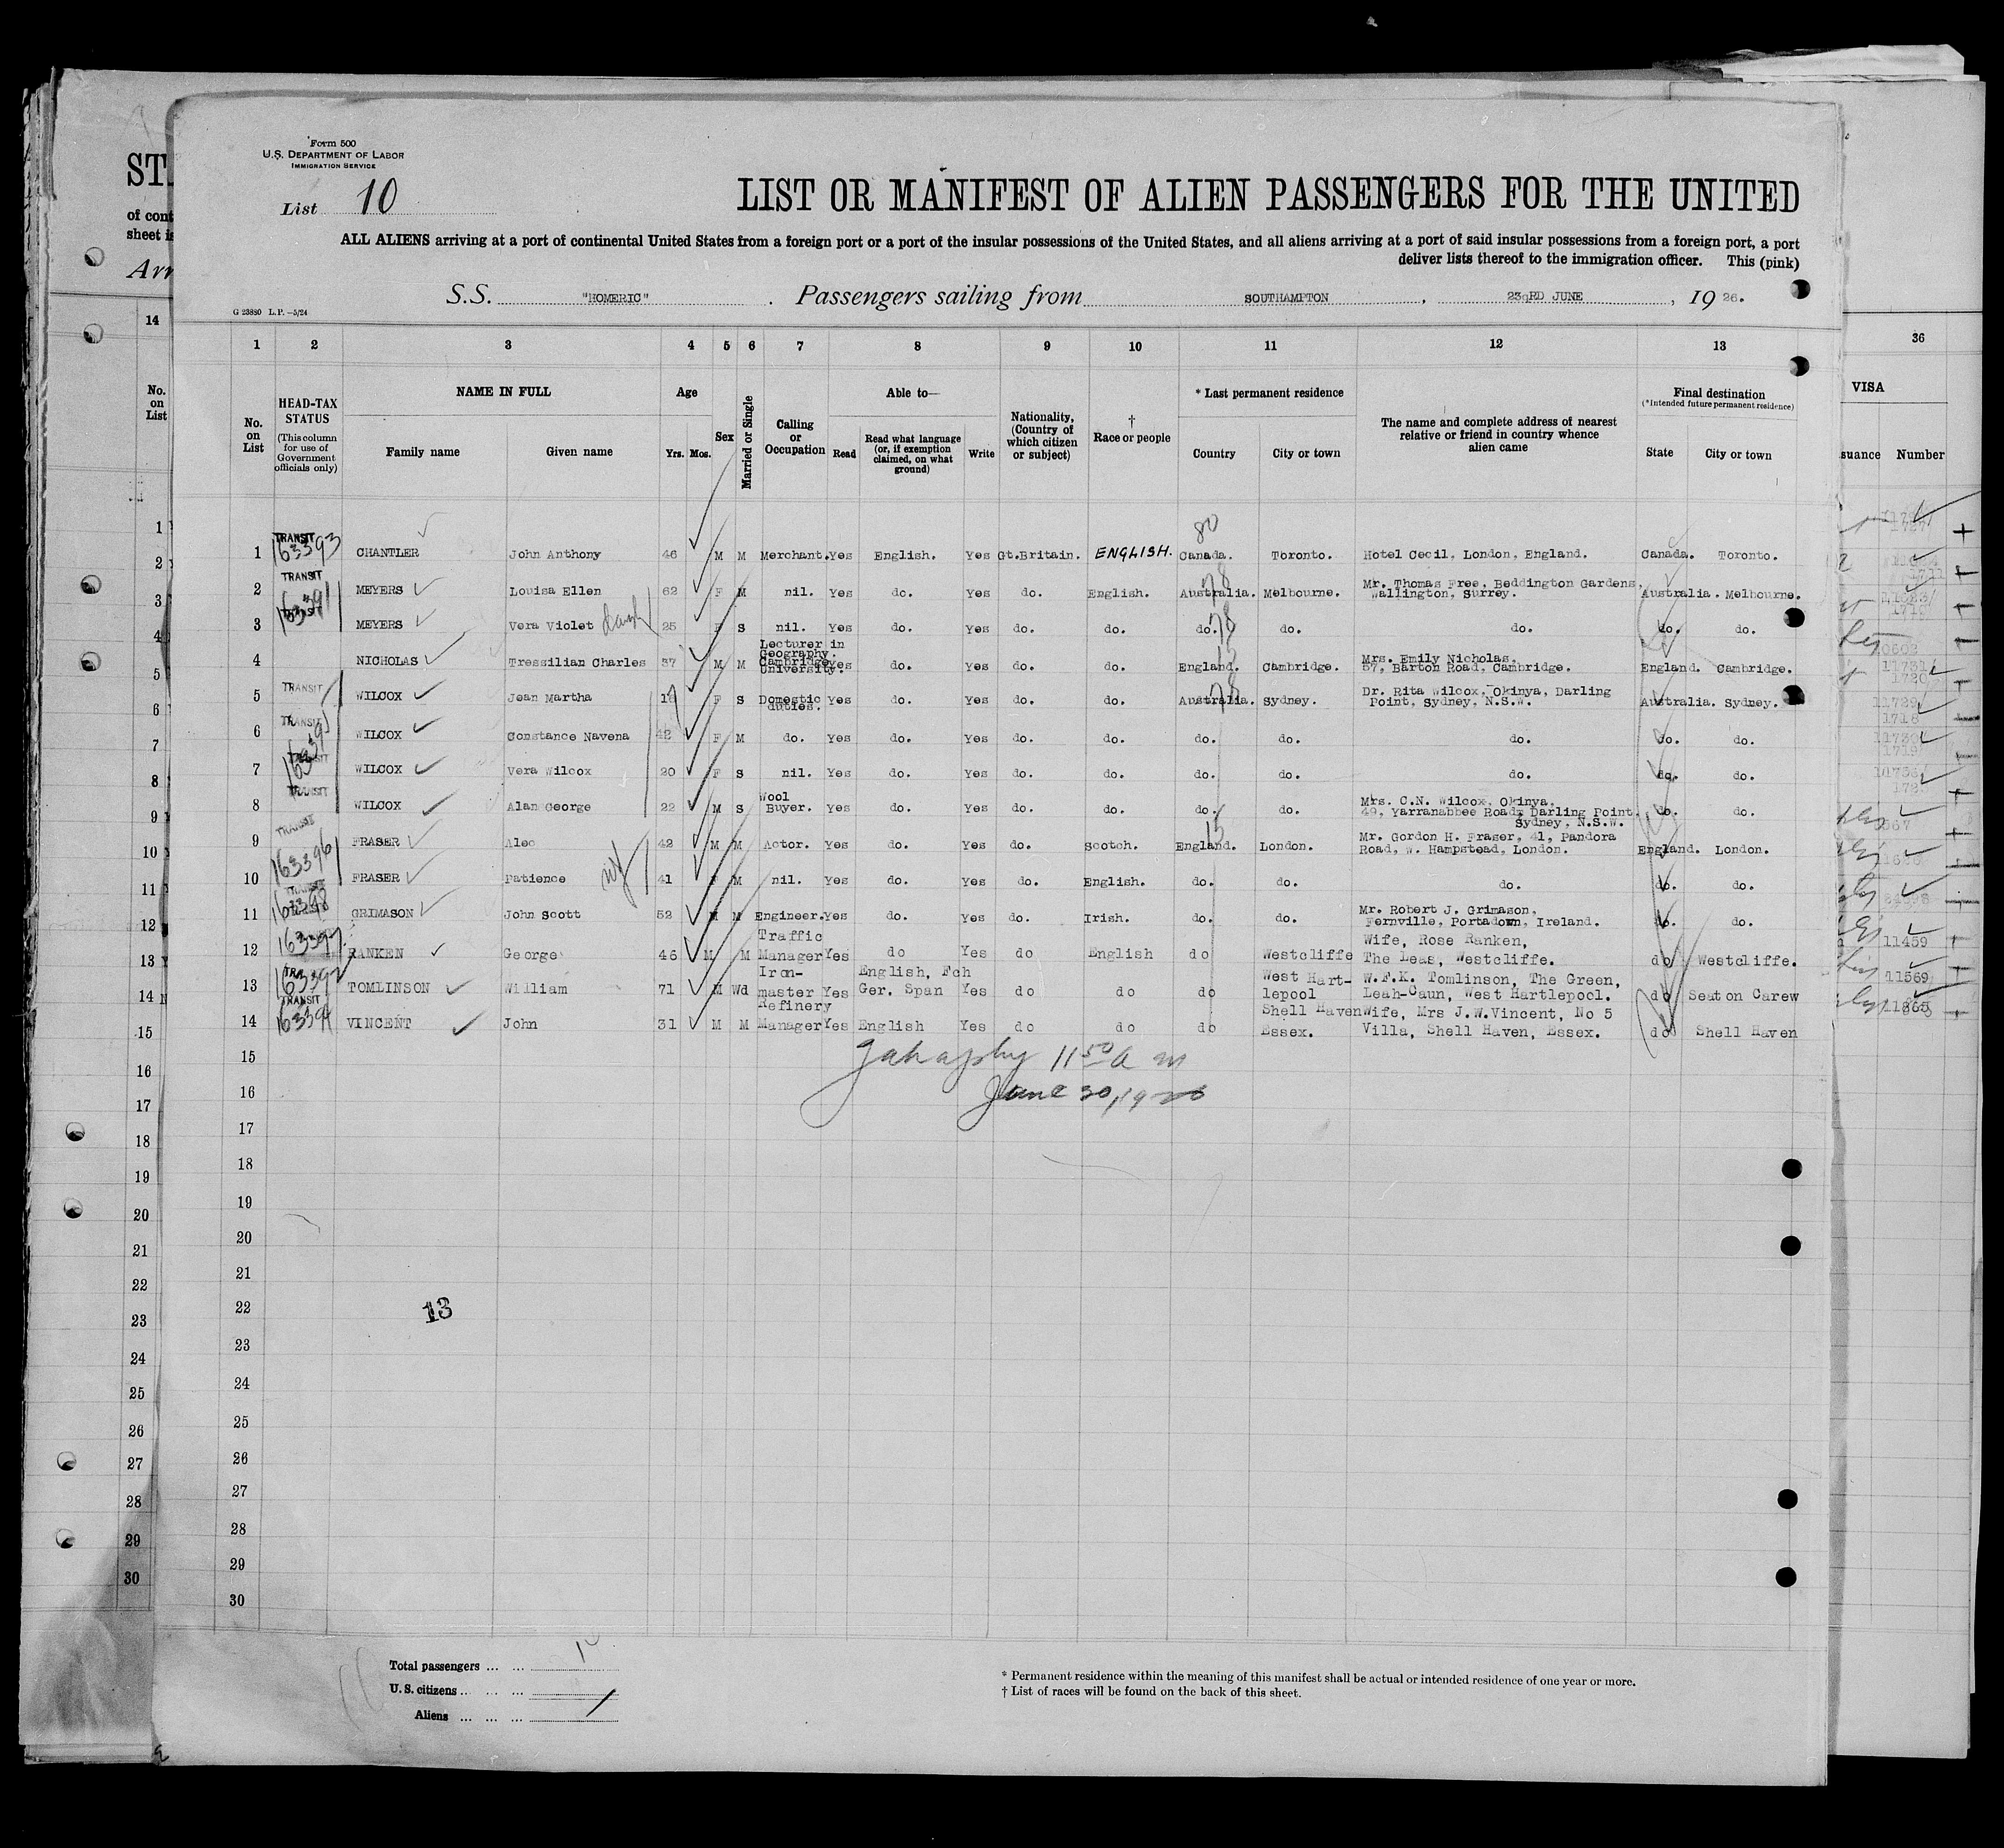 Form 500
U.S. DEPARTMENT OF LABOR
IMMIGRATION SERVICE
List 10
LIST OR MANIFEST OF ALIEN PASSENGERS FOR THE UNITED
ALL ALIENS arriving at a port of continental United States from a foreign port or a port of the insular possessions of the United States, and all aliens arriving at a port of said insular possessions from a foreign port, a port
deliver lists thereof to the immigration officer. This (pink)
S.S. "HOMERIC" . Passengers sailing from SOUTHAMPTON , 23RD JUNE , 19 26.
G 23880 L.P.—5/24
1 2 3 4 5 6 7 8 9 10 11 12 13
No. on List HEAD-TAX STATUS (This column for use of Government officials only) NAME IN FULL Family name Given name Age Yrs. Mos. Sex Married or Single Calling or Occupation Able to— Read Read what language (or, if exemption claimed, on what ground) Write Nationality, (Country of which citizen or subject) † Race or people * Last permanent residence Country City or town The name and complete address of nearest relative or friend in country whence alien came Final destination (*Intended future permanent residence) State City or town
1 TRANSIT 163393 CHANTLER John Anthony 46 M M Merchant. Yes English. Yes Gt.Britain. ENGLISH. 80 Canada. Toronto. Hotel Cecil, London, England. Canada. Toronto.
2 TRANSIT 163391 MEYERS Louisa Ellen 62 F M nil. Yes do. Yes do. English. 78 Australia. Melbourne. Mr. Thomas Free, Beddington Gardens, Wallington, Surrey. Australia. Melbourne.
3 MEYERS Vera Violet daugh 25 F S nil. Yes do. Yes do. do. do. 78 do. do. do. do.
4 NICHOLAS Tressilian Charles 37 M M Lecturer in Geography. Cambridge University. Yes do. Yes do. do. England. Cambridge. Mrs. Emily Nicholas, 57, Barton Road, Cambridge. England. Cambridge.
5 TRANSIT WILCOX Jean Martha F S Domestic duties. Yes do. Yes do. do. 78 Australia. Sydney. Dr. Rita Wilcox, Okinya, Darling Point, Sydney, N.S.W. Australia. Sydney.
6 TRANSIT WILCOX Constance Navena 42 F M do. Yes do. Yes do. do. do. do. do. do. do.
7 WILCOX Vera Wilcox 20 F S nil. Yes do. Yes do. do. do. do. do. do. do.
8 TRANSIT WILCOX Alan George 22 M S Wool Buyer. Yes do. Yes do. do. do. do. Mrs. C.N. Wilcox, Okinya, 49, Yarranabbee Road, Darling Point, Sydney, N.S.W. do. do.
9 TRANSIT FRASER Alec 42 M M Actor. Yes do. Yes do. Scotch. 15 England. London. Mr. Gordon H. Fraser, 41, Pandora Road, W. Hampstead, London. England. London.
10 163396 FRASER Patience wf 41 F M nil. Yes do. Yes do. English. do. do. do. do. do.
11 163398 GRIMASON John Scott 52 M M Engineer. Yes do. Yes do. Irish. do. do. Mr. Robert J. Grimason, Fernville, Portadown, Ireland. do. do.
12 163397 RANKEN George 46 M M Traffic Manager Yes do Yes do English do Westcliffe Wife, Rose Ranken, The Leas, Westcliffe. do Westcliffe.
13 TOMLINSON William 71 M Wd Iron-master Yes English, Fch Ger. Span Yes do do do West Hartlepool W.F.K. Tomlinson, The Green, Leah-Caun, West Hartlepool. do Seaton Carew
14 TRANSIT 163394 VINCENT John 31 M M Refinery Manager Yes English Yes do do do Shell Haven Essex. Wife, Mrs J.W.Vincent, No 5 Villa, Shell Haven, Essex. do Shell Haven
15
11 50 A m
16
June 30, 1926
17
18
19
20
21
22
13
23
24
25
26
27
28
29
30
Total passengers ... ...
U.S. citizens... ... ...
Aliens ... ... ...
* Permanent residence within the meaning of this manifest shall be actual or intended residence of one year or more.
† List of races will be found on the back of this sheet.
ST
of cont
sheet i
Arr
14
No. on List
1
2
3
4
5
6
7
8
9
10
11
12
13
14
15
16
17
18
19
20
21
22
23
24
25
26
27
28
29
30
36
VISA
suance Number
11459
11569